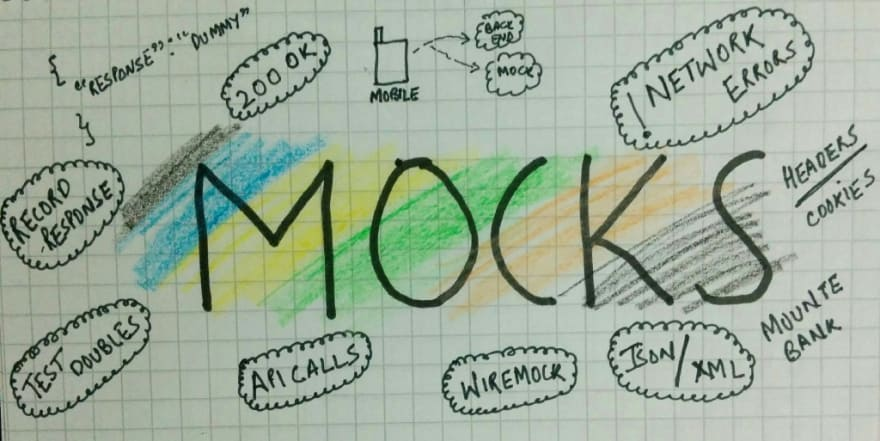 {
"RESPONSE":"DUMMY"
}
200 OK
MOBILE
BACK
END
MOCK
! NETWORK
ERRORS
RECORD
RESPONSE
MOCKS
HEADERS
COOKIES
TEST
DOUBLES
API CALLS
WIREMOCK
JSON/XML
MOUNTE
BANK